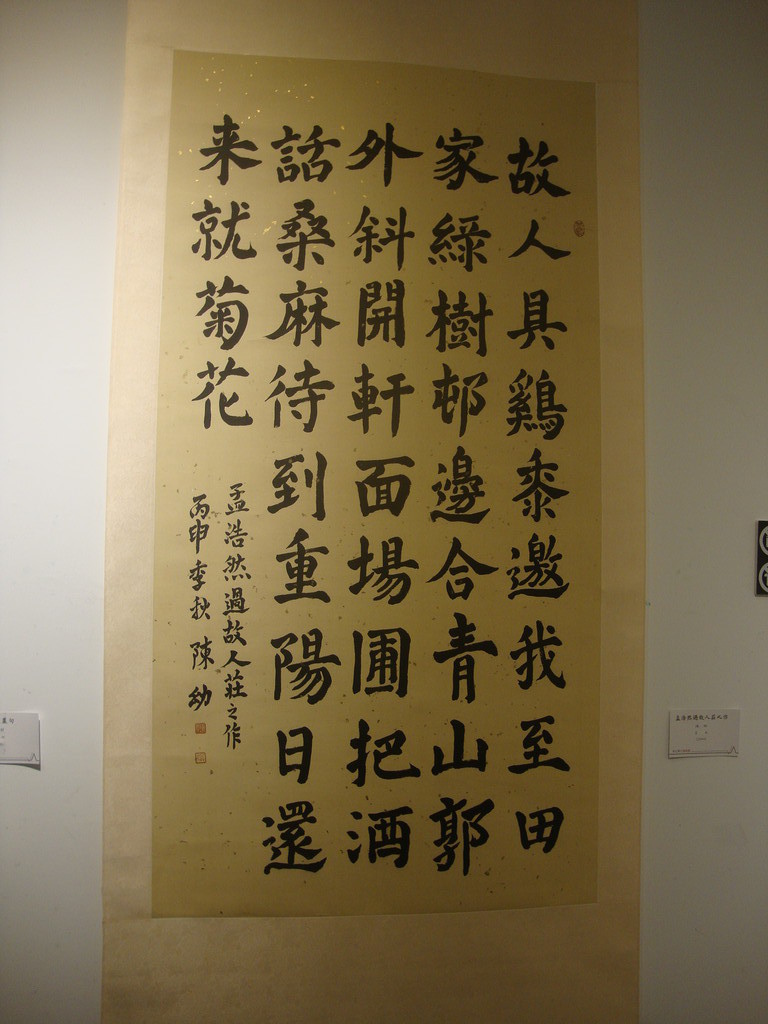 故人具鷄黍邀我至田
家綠樹邨邊合青山郭
外斜開軒面場圃把酒
話桑麻待到重陽日還
来就菊花
孟浩然過故人莊之作
丙申季秋 陳幼
孟浩然過故人莊之作